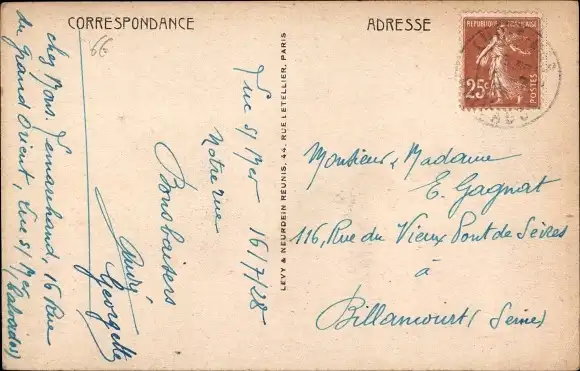 CORRESPONDANCE
ADRESSE
66
REPUBLIQUE FRANÇAISE
25c
POSTES
Luc s/Mer 16/7/28
Notre rue
Bons baisers
André
Georgette
chez Mons. Lemarchand, 16 Rue
du Grand Orient, Luc s/Mer
(Calvados)
LEVY & NEURDEIN REUNIS, 44, RUE LETELLIER, PARIS
Monsieur, Madame
E. Gagnat
116, Rue du Vieux Pont de Sèvres
à
Billancourt (Seine)